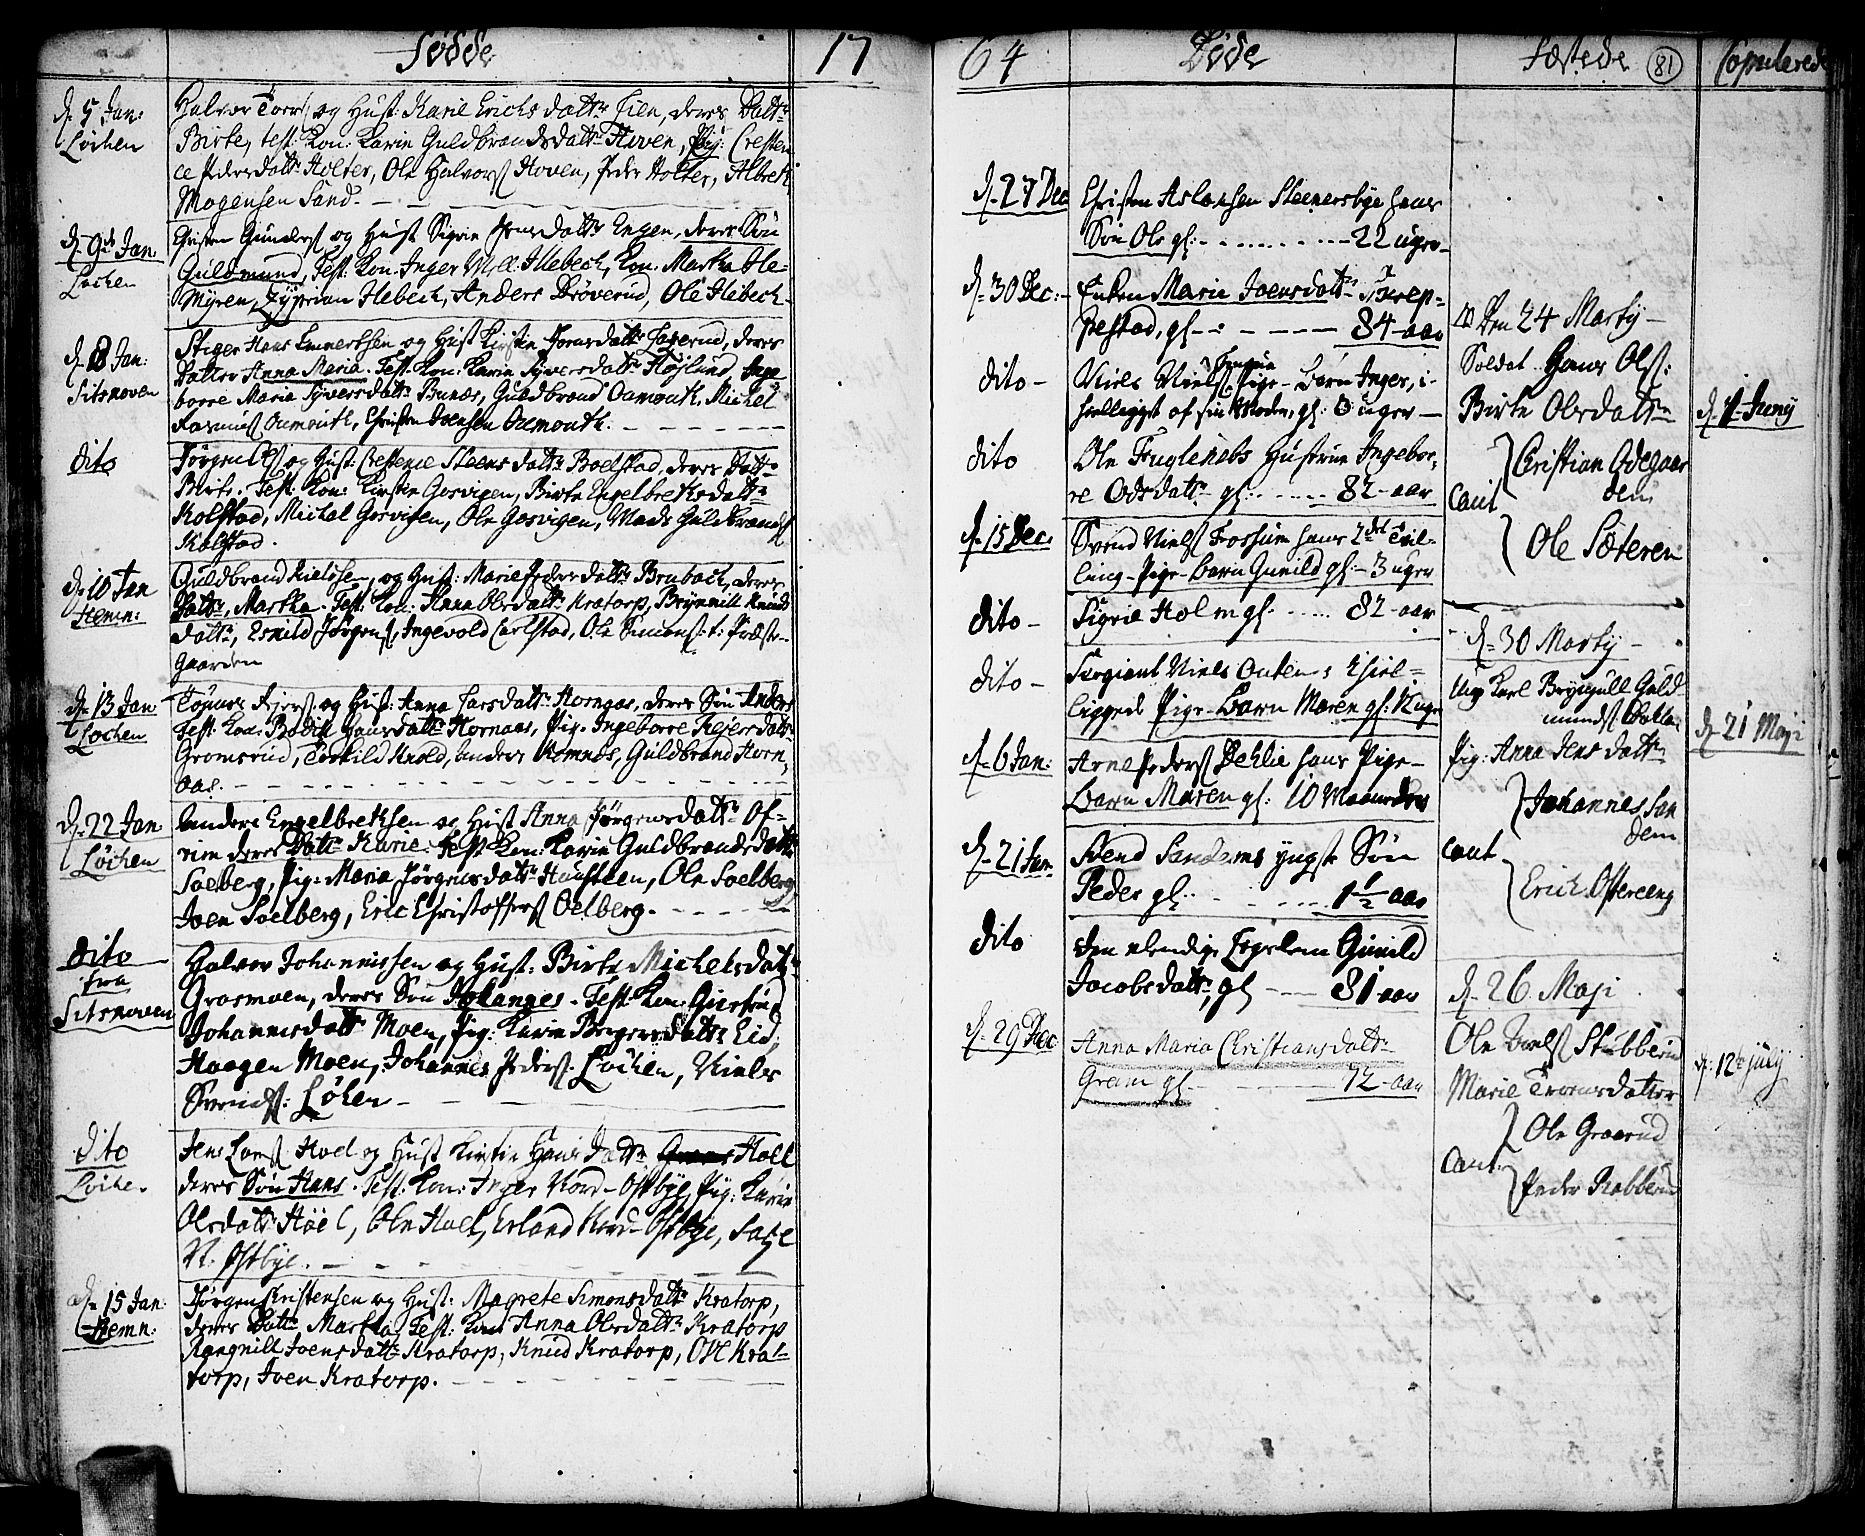 Födde
17
d. 5. Jan:
Löchen
Halvor Torers og Hust: Karie Erichs Datt: Lien, deres Datt:
Birte, test: Kon: Karin Guldbrandsdatt: Hoven, Pig: Cresten
ce Pedersdatt: Holter, Ole Halvors: Hoven, Peder Holter, Albrek
Mogensen Sand.
d. 9de Jan.
Löchen
Christen Gunders: og Hust Sigrie Jensdatt: Engen, deres Sön
Guldmund, Test: Kon: Inger Hebech, Kon: Martha Hle-
Myren, Zyprian Hebech, Anders Dröverud, Ole Hebech
d. 8 Jan:
Sitskoven
Stiger Hans Emmertsen og Hust Kirstin Joensdatt:, deres
Datter Anna Maria. Test: Kon: Karin Syversdatt: Höjlund, Inge
borre Maria Syversdatt: Bunæs, Guldbrand Ouemouth, Michel
Rasmus: Ouemouth, Christen Joensen Ouemouth.
dito
Jörgen Ols: og Hust: Crestenie Steensdatt: Boelstad, deres Datt:
Birte. Test: Kon: Kirstin Gosvigen, Birte Engelbretsdatt:
Kolstad, Michel Gosvigen, Ole Gosvigen, Mads Guldbrands:
Kolstad.
d. 10 Jan
Hemn:
Guldbrand Nielssen, og Hust: Marie Pedersdatt: Brubach, deres
Datt:, Martha. Test: Kon: Anna Olsdatt: Kratorp, Brynnill Knuds
datt:, Eskild Jörgens:, Ingevold Carlstad, Ole Simons: t: Præste-
Gaarden
d. 13 Jan
Löchen
Tönnes Rejers: og Hust: Anna Larsdatt: Hornaas, deres Sön Anders
Test: Kon: Bodil Hansdatt: Hornaas, Pig: Ingeborre Rejersdatt:
Gromsrud, Torkild Krold, Anders Komnæs, Guldbrand Horn,
aas.
d. 22 Jan
Löchen
Anders Engelbrektsen og Hust Anna Jörgensdatt: Of-
rim deres Datt: Karie. Test: Kon: Karin Guldbrandsdatt:
Soelberg, Pig: Maria Jörgensdatt: Hausteen, Ole Soelberg,
Joen Soelberg, Eric Christoffers: Oelberg.
dito
fra
Sitskoven
Halvor Johannissen og Hust: Birte Michelsdatt:
Grasmoen, deres Sön Johannes. Test: Kon: Giertrud
Johannisdatt: Moen, Pig: Karin Birgersdatt: Eid,
Haagen Moen, Johannes Peders: Löchen, Niels
Svends: Löken
dito
Löchen
Jens Lars: Hoel og Hust Kirstin Hans Datt: Hoel
deres Sön Hans. Test: Kon: Inger Nord-Ostbye, Pig: Karin
Olsdatt: Höel, Ole Hoel, Erland Nord-Ostbye, Lars
N: Ostbye.
d. 15 Jan:
Hemn:
Jörgen Christensen og Hust: Magrete Simonsdatt: Kratorp,
deres Datt: Martha, Test: Kon: Anna Olsdatt: Kratorp
Rangnill Joensdatt: Kratorp, Knud Kratorp, Ole Kra-
torp, Joen Kratorp.
64
Döde
d. 27 Dec
Christen Aslaksen Steenersbye hans
Sön Ole gl: 22 uger
d. 30 Dec:
Enken Marie Joensdatt: Trep-
pestad, gl: 84-aar
dito
Niels Niels: Pige-Barn Inger, i-
hielligget af sin Moder, gl: 8 uger
dito
Ole Fuglenebs Hustrue Ingebor,
re Odsdatt: gl: 82-aar
d. 15 Dec:
Svend Niels: Fossum hans 2det Tvil-
ling-Pige-Barn Gunild gl: 3 uger
dito
Sigrie Holm gl: 82-aar
dito
Sergiant Niels Onken: ihiel-
ligged Pige-Barn Maren gl: uger
d. 6 Jan:
Arne Peders: Dehlie hans Pige-
Barn Maren gl: 10 Maaneder
d. 21 Jan
Svend Sandems yngste Sön
Peder gl: 1½-aar
dito
den elendige Gunild
Jacobsdatt:, gl 81-aar
d. 29 Dec
Anna Maria Christiansdatt:
Gram gl: 72-aar
Fæstede
81
Den 24 Martij
Soldat Hans Ols:
Birte Olsdatt:
Caut
Christian Odegaar
den
Ole Sæteren
d. 30 Martij
Ung Karl Brynjull Guld
munds: Dalle
Pig: Anna Jensdatt:
Caut
Johannes San
dem
Erich Ostereng
d. 26 Maji
Ole Stubberud
Marie Trondsdatter
Caut:
Ole Graarud
Peder Rabberud
Copulerede
d. 1 Junij
d. 21 Maji
d. 12te july